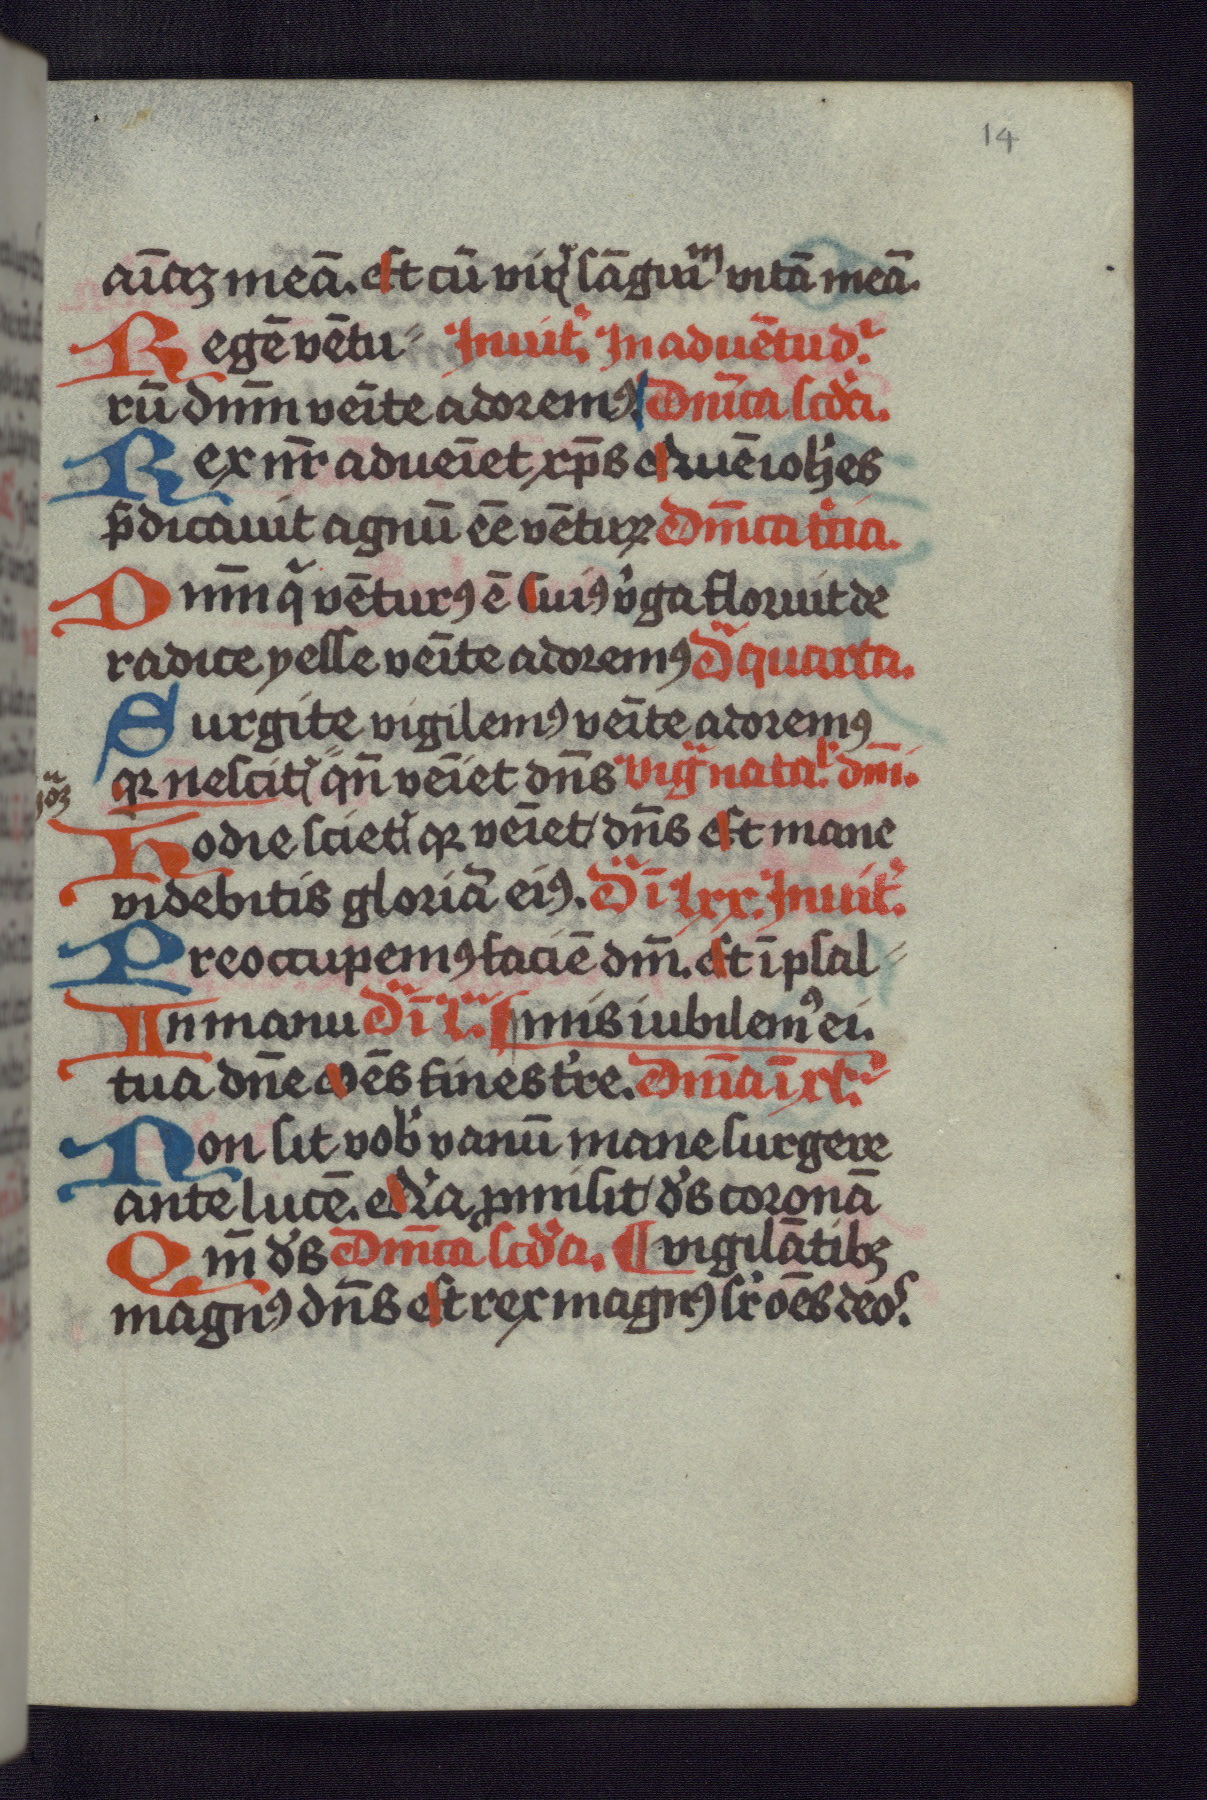 14
aīaȝ meā. et cū viris sāguinū vitā meā.
Regē vētu⸗ Inuit. In aduētu d.
rū dnm̄ veīte adorem9 Dnīca scd'a.
Rex nr̄ adueīet xp̄s quē ioh̄es
p̄dicauit agnū eē vēturū Dnīca tcia.
Dnm̄ q' vētur9 ē cui9 v'ga floruit de
radice yesse veīte adorem9 D quarta.
Surgite vigilem9 veīte adorem9
qr nescitis qn̄ veīet dn̄s Vig natal' dnī.
Hodie scietis qr veīet dn̄s et mane
videbitis gloriā ei9. D ī lxx. Inuit.
Preoccupem9 faciē dnī. et ī psal⸗
In manu D ī l. ¶ mis iubilem9 ei.
tua dn̄e oēs fines t're. Dnīca ī xl.
Non sit vob' vanū mane surgere
ante lucē. quia pmisit d's coronā
Qm̄ d's Dnīca scd'a. ¶ vigilātibȝ
magn9 dn̄s et rex magn9 sr' oēs deos.